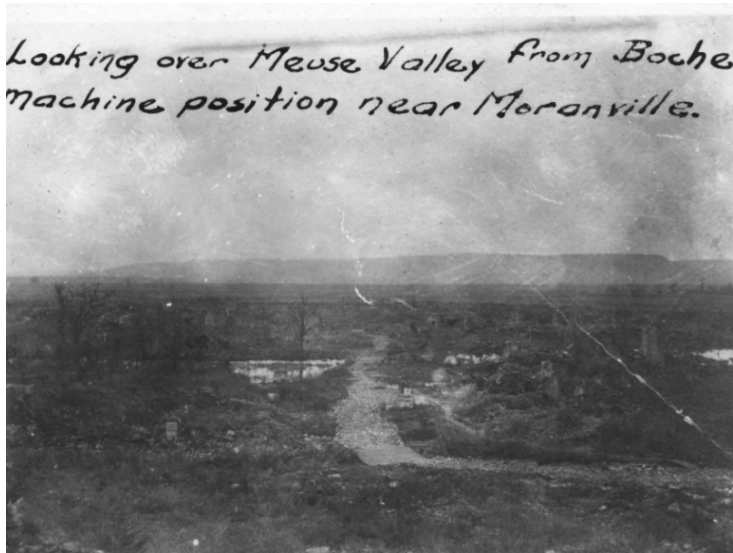 Looking over Meuse Valley from Boche
machine position near Moranville.